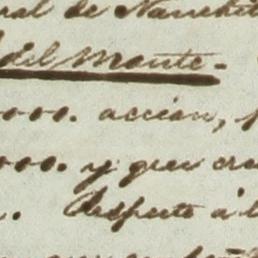 ral de Nanchit
del Monte.
000. accion,
000. y que cre
Respecto á l